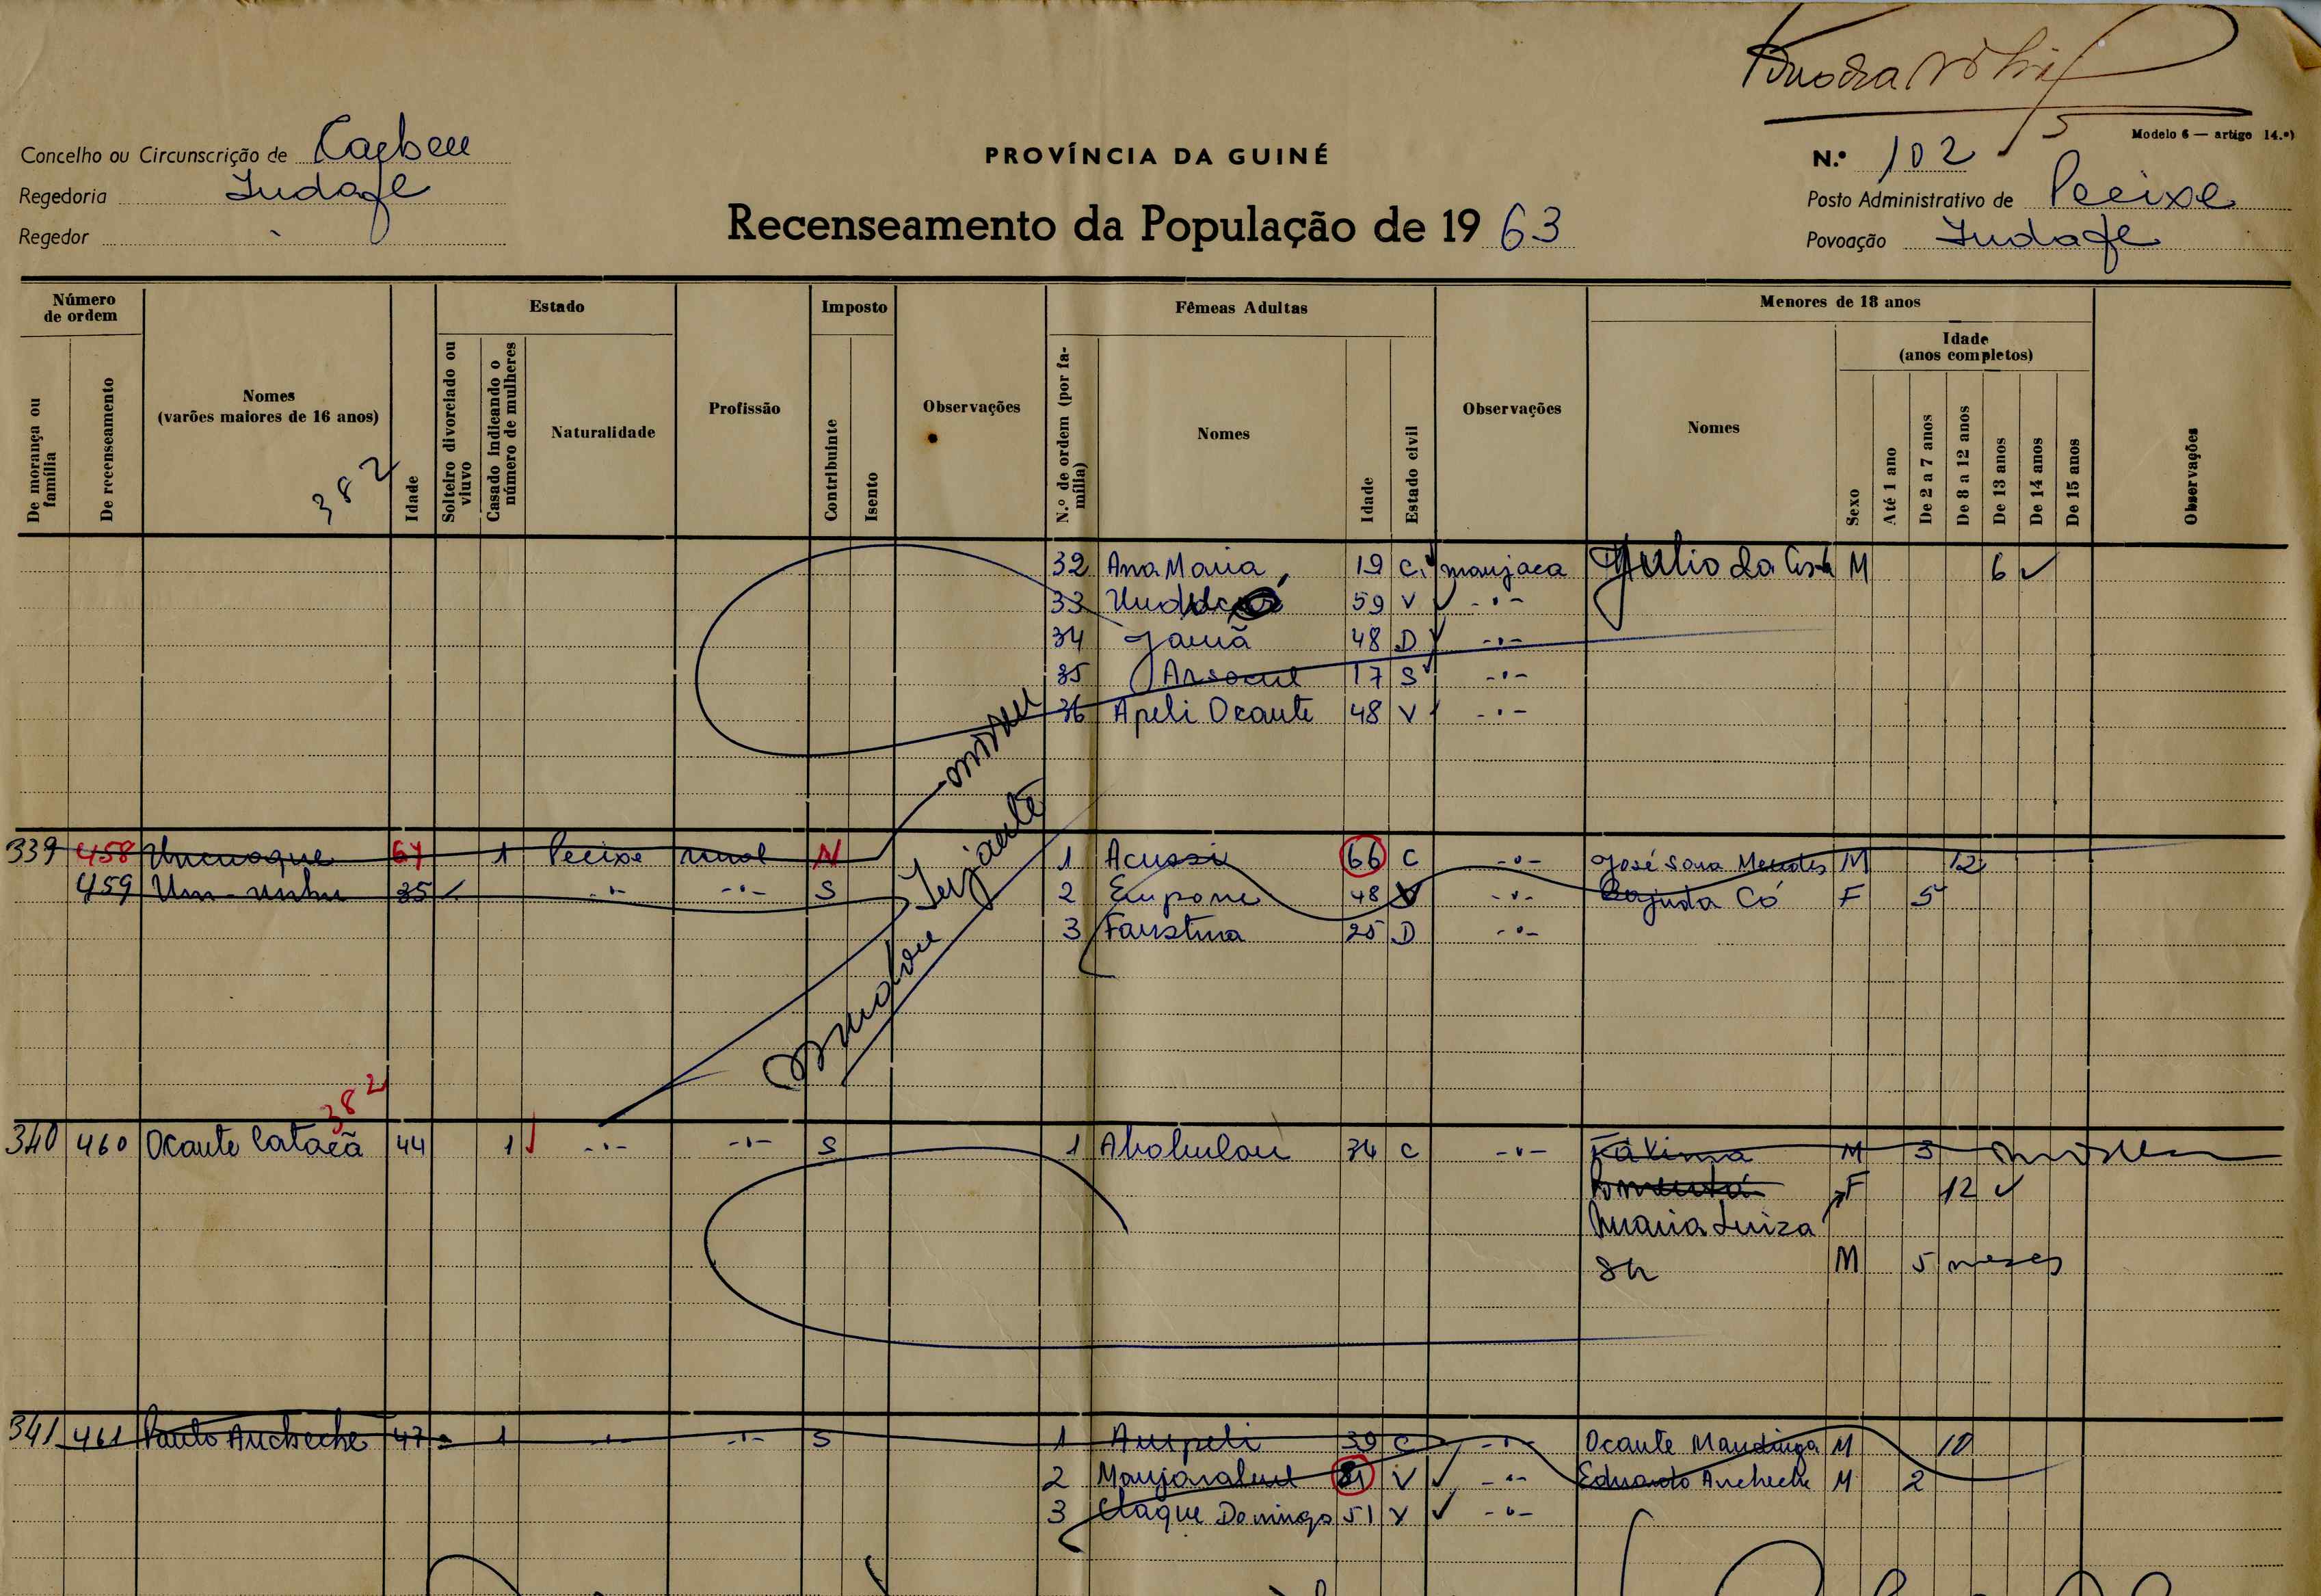 Modelo 6 — artigo 14.º)
Concelho ou Circunscrição de
PROVÍNCIA DA GUINÉ
N.º 102
Regedoria Indafe
Posto Administrativo de Pecixe
Regedor
Recenseamento da População de 1963
Povoação Indafe
Número de ordem
Estado
Imposto
Fêmeas Adultas
Menores de 18 anos
Idade
(anos completos)
De morança ou família
De recenseamento
Nomes
(varões maiores de 16 anos)
382
Idade
Solteiro divorciado ou viuvo
Casado indicando o número de mulheres
Naturalidade
Profissão
Contribuinte
Isento
Observações
N.º de ordem (por família)
Nomes
Idade
Estado civil
Observações
Nomes
Sexo
Até 1 ano
De 2 a 7 anos
De 8 a 12 anos
De 13 anos
De 14 anos
De 15 anos
Observações
32 Ana Maria 19 C. manjaca Julio da Costa M 6
33 59 V -"-
34 48 D -"-
35 17 S -"-
36 Apeli Ocante 48 V -"-
339 458 67 1 Pecixe rural N 1 Acussi 66 C -"- José Sana Mendes M 12
459 35 -"- -"- S 2 Empone 48 V -"- Có F 5
3 Faustina 25 D -"-
Mudou
Teixante
382
340 460 Ocante Cataçã 44 1 -"- -"- S 1 34 C -"- Fátima M 3
F 12
Maria Luiza
Sn M 5 meses
341 461 Paulo Ancheche 47 1 -"- -"- S 1 Ampeli 39 C -"- Ocante Mandinga M 10
2 81 V -"- Eduardo Ancheche M 2
3 Claque Domingo 51 V -"-